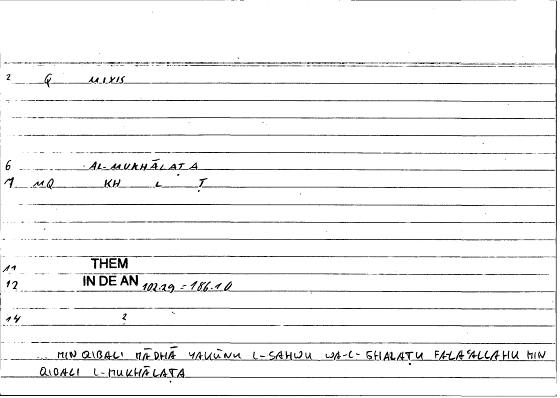 2 G MIXIS
6 AL-MUKHĀLAṬA
7 MQ KH L Ṭ
11 THEM
12 IN DE AN 102.29 = 186.10
14 2
MIN QIBALI MĀDHĀ YAKŪNU L-SAHWU WA-L-GHALAṬU FALAʿALLAHU MIN
QIBALI L-MUKHĀLAṬA